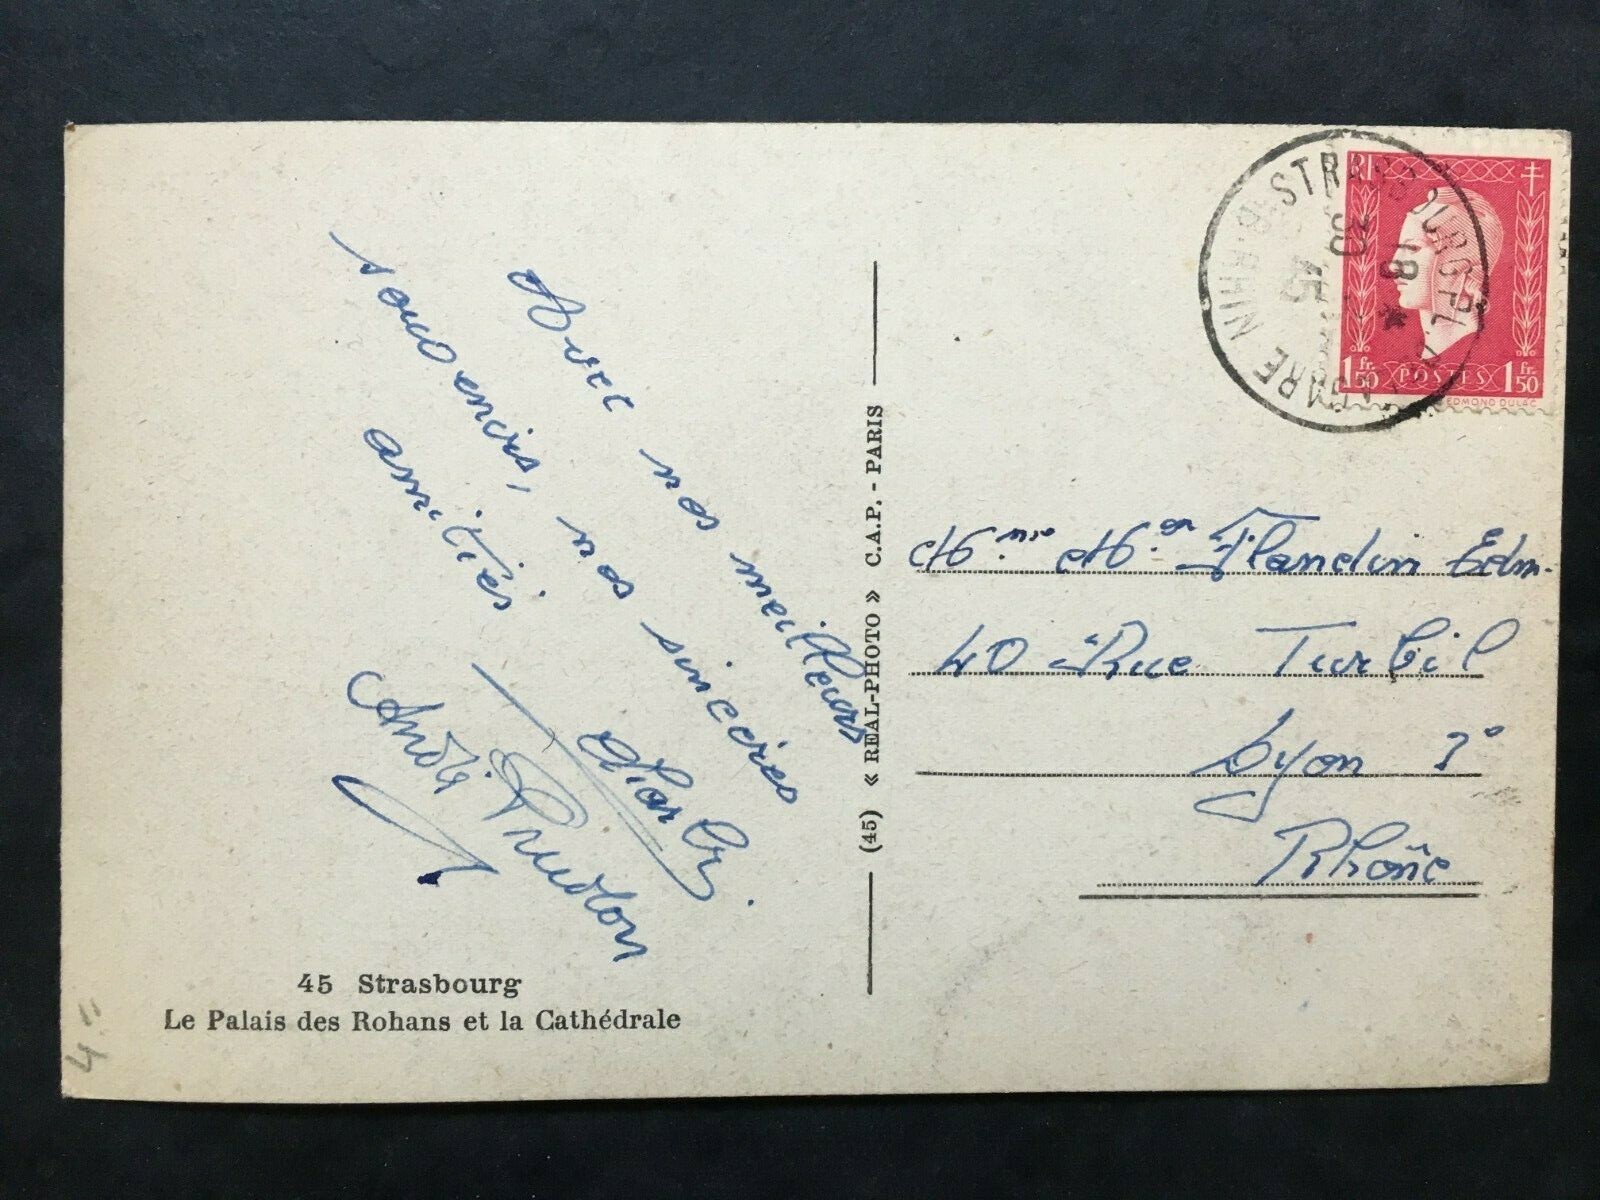 Avec nos meilleurs
souvenirs, nos sincères
amitiés
André Prudon
45 Strasbourg
Le Palais des Rohans et la Cathédrale
(45) « REAL-PHOTO » C.A.P. - PARIS
STRASBOURG PL. DE LA GARE
BAS-RHIN
18
30
45
RF
1 fr. 50 POSTES 1 fr. 50
EDMOND DULAC
Flandin Edm.
40 Rue Turbil
Lyon 3e
Rhône
4.-